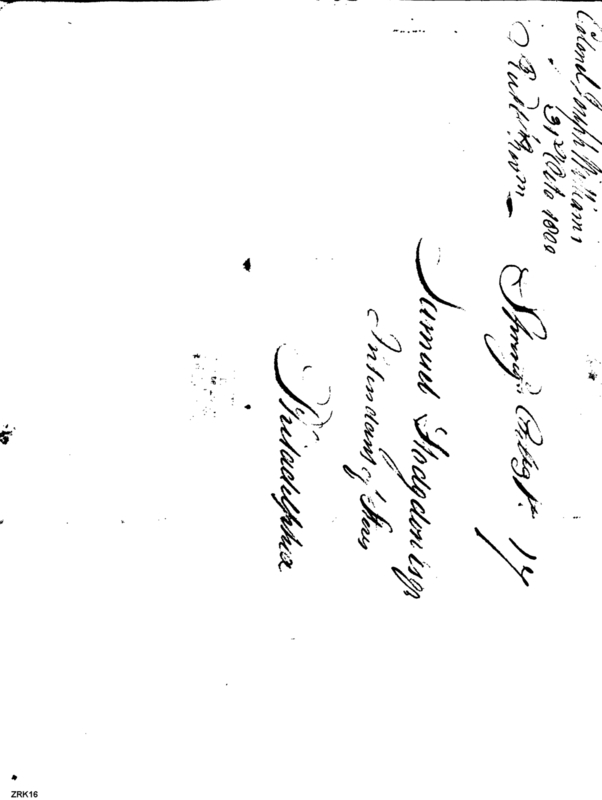 Colonel Joseph Williams
31 Octo 1800
Springf. 17
Samuel Hodgdon Esqr
Intendant of Stores
Philadelphia
ZRK16